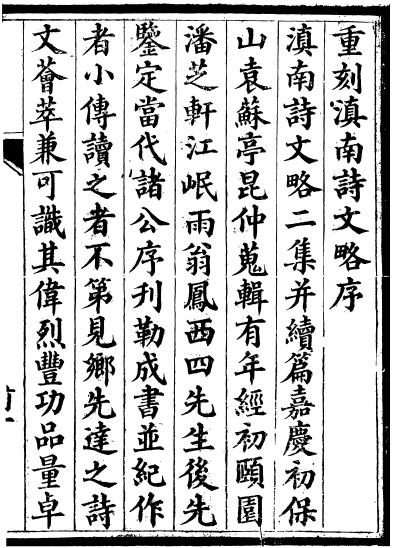 重刻滇南詩文略序
滇南詩文略二集并續篇嘉慶初保
山袁蘇亭昆仲蒐輯有年經初頤園
潘芝軒江岷雨翁鳳西四先生後先
鑒定當代諸公序刊勒成書並紀作
者小傳讀之者不第見鄉先達之詩
文薈萃兼可識其偉烈豐功品量卓